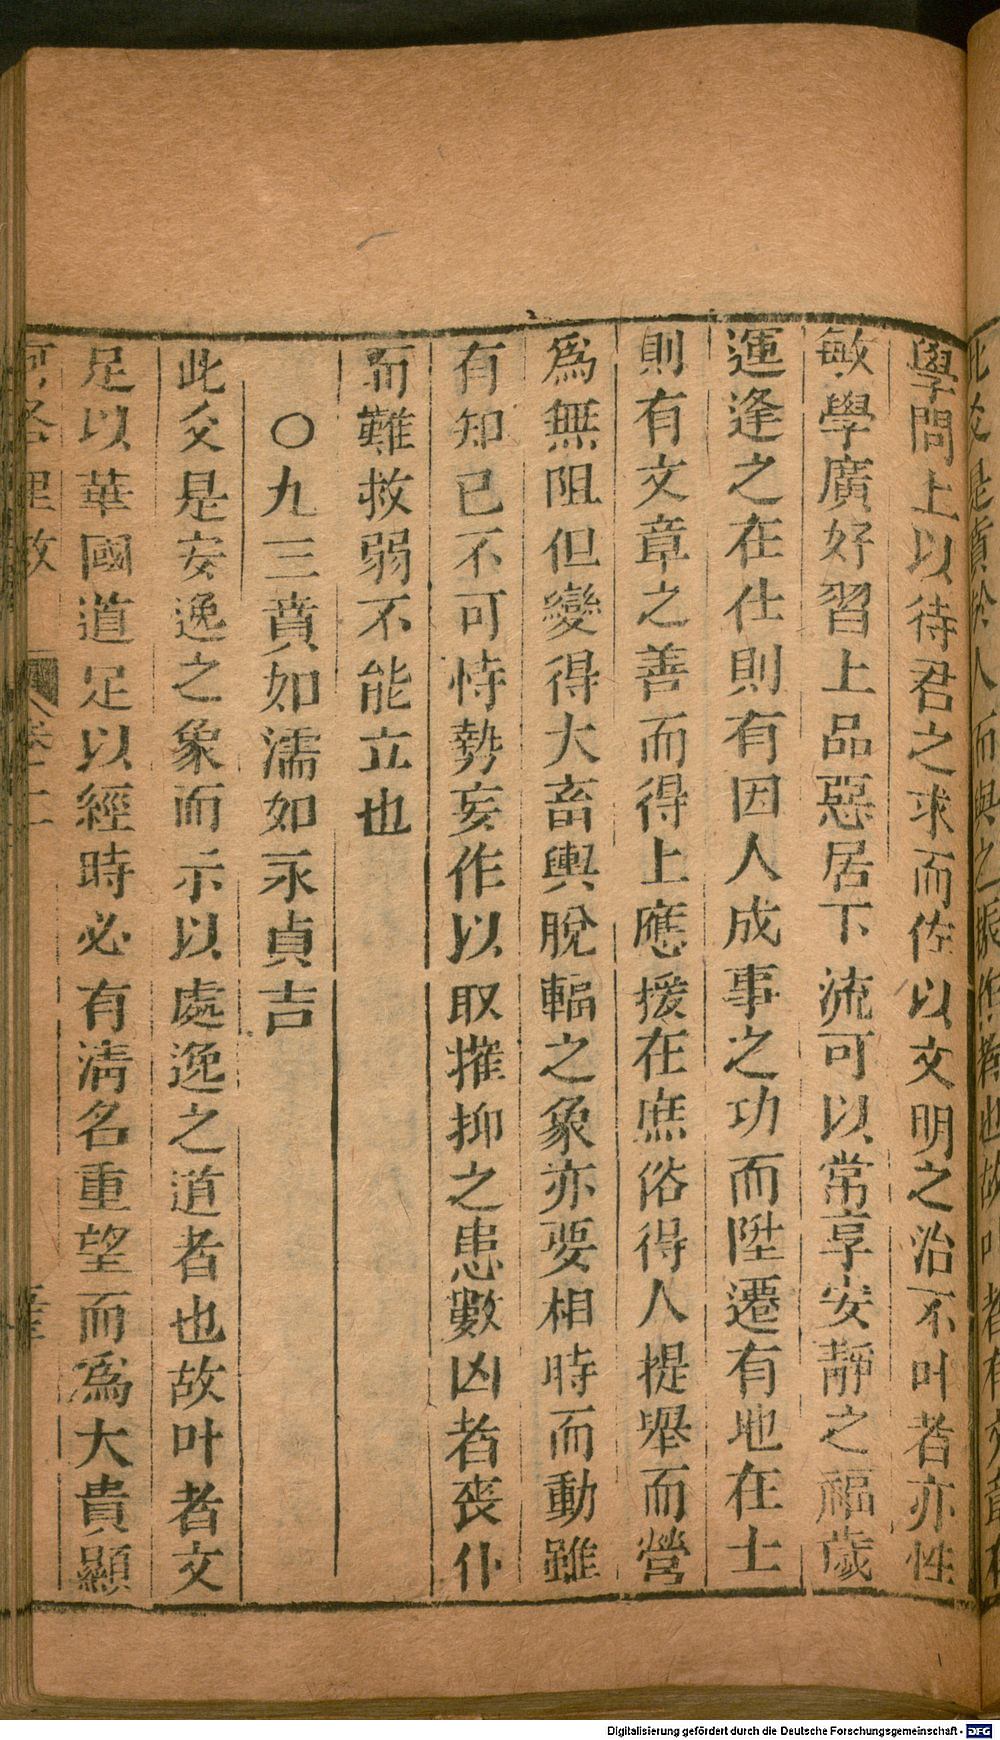 學問上以待君之求而佐以文明之治不叶者亦性
敏學廣好習上品惡居下流可以常享安靜之福歲
運逢之在仕則有因人成事之功而陞遷有地在士
則有文章之善而得上應援在庶俗得人提舉而營
為無阻但變得大畜輿脫輻之象亦要相時而動雖
有知已不可恃勢妄作以取摧抑之患數凶者喪仆
而難救弱不能立也
〇九三賁如濡如永貞吉
此爻是安逸之象而示以處逸之道者也故叶者文
足以華國道足以經時必有清名重望而為大貴顯
河洛理数 卷二
Digitalisierung gefördert durch die Deutsche Forschungsgemeinschaft - DFG